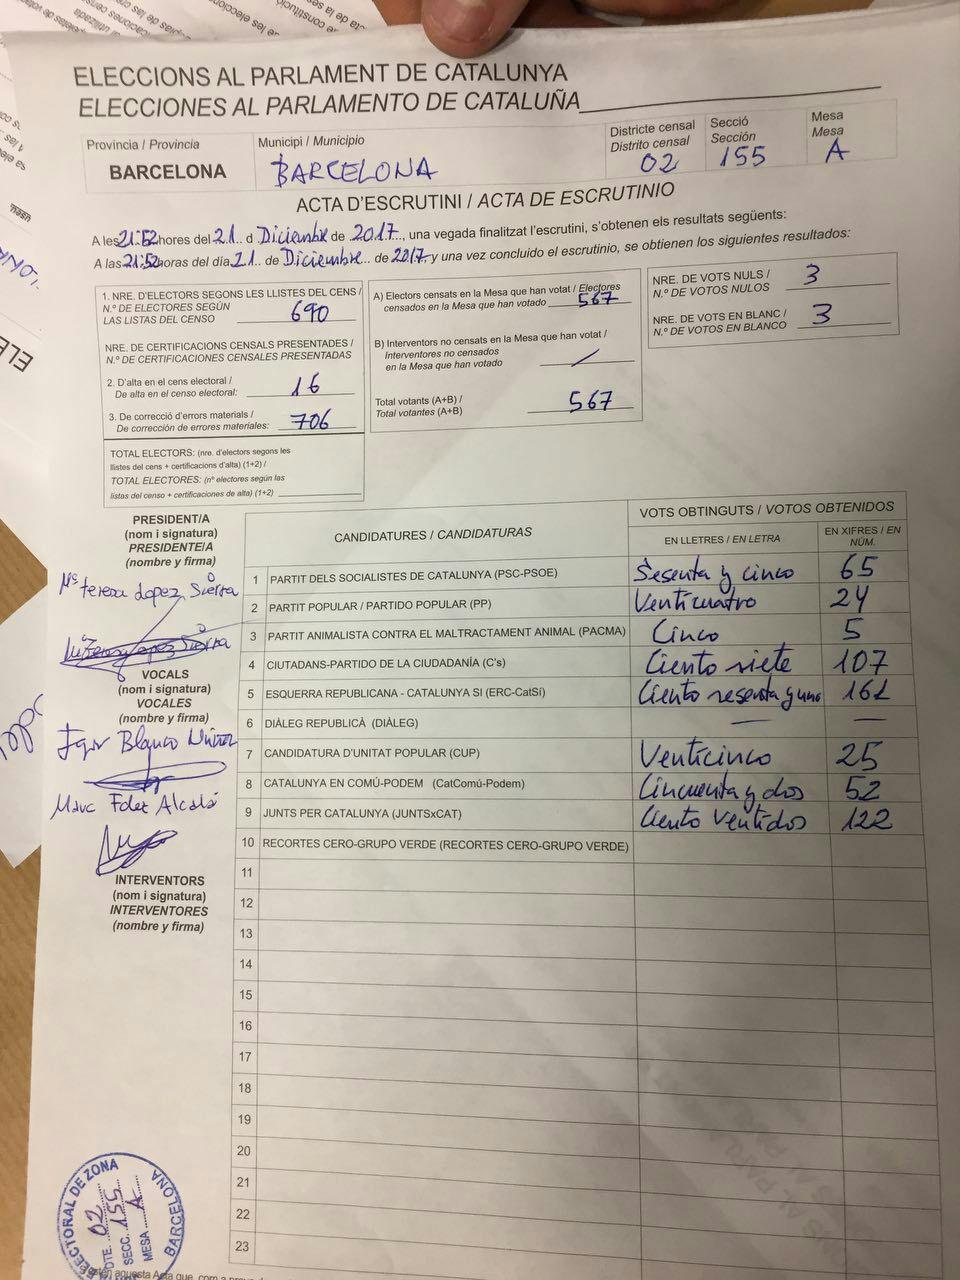 ELECCIONS AL PARLAMENT DE CATALUNYA
ELECCIONES AL PARLAMENTO DE CATALUÑA
Provincia / Provincia
BARCELONA
Municipi / Municipio
BARCELONA
Districte censal
Distrito censal
02
Secció
Sección
155
Mesa
Mesa
A
ACTA D'ESCRUTINI / ACTA DE ESCRUTINIO
A les 21:52 hores del 21 d Diciembre de 2017, una vegada finalitzat l'escrutini, s'obtenen els resultats següents:
A las 21:52 horas del día 21 de Diciembre de 2017 y una vez concluido el escrutinio, se obtienen los siguientes resultados:
1. NRE. D'ELECTORS SEGONS LES LLISTES DEL CENS /
N.º DE ELECTORES SEGÚN
LAS LISTAS DEL CENSO 690
NRE. DE CERTIFICACIONS CENSALS PRESENTADES /
N.º DE CERTIFICACIONES CENSALES PRESENTADAS
2. D'alta en el cens electoral /
De alta en el censo electoral: 16
3. De correcció d'errors materials /
De corrección de errores materiales: 706
TOTAL ELECTORS: (nre. d'electors segons les
llistes del cens + certificacions d'alta) (1+2) /
TOTAL ELECTORES: (nº electores según las
listas del censo + certificaciones de alta) (1+2)
A) Electors censats en la Mesa que han votat / Electores
censados en la Mesa que han votado 567
B) Interventors no censats en la Mesa que han votat /
Interventores no censados
en la Mesa que han votado /
Total votants (A+B) /
Total votantes (A+B) 567
NRE. DE VOTS NULS /
N.º DE VOTOS NULOS 3
NRE. DE VOTS EN BLANC /
N.º DE VOTOS EN BLANCO 3
PRESIDENT/A
(nom i signatura)
PRESIDENTE/A
(nombre y firma)
Mª teresa Lopez Sierra
VOCALS
(nom i signatura)
VOCALES
(nombre y firma)
Igor Blanco
Marc Fdez Alcalá
INTERVENTORS
(nom i signatura)
INTERVENTORES
(nombre y firma)
CANDIDATURES / CANDIDATURAS
VOTS OBTINGUTS / VOTOS OBTENIDOS
EN LLETRES / EN LETRA
EN XIFRES / EN NÚM.
1 PARTIT DELS SOCIALISTES DE CATALUNYA (PSC-PSOE) Sesenta y cinco 65
2 PARTIT POPULAR / PARTIDO POPULAR (PP) Venticuatro 24
3 PARTIT ANIMALISTA CONTRA EL MALTRACTAMENT ANIMAL (PACMA) Cinco 5
4 CIUTADANS-PARTIDO DE LA CIUDADANÍA (C's) Ciento siete 107
5 ESQUERRA REPUBLICANA - CATALUNYA SI (ERC-CatSí) Ciento sesenta y uno 161
6 DIÀLEG REPUBLICÀ (DIÀLEG) — —
7 CANDIDATURA D'UNITAT POPULAR (CUP) Venticinco 25
8 CATALUNYA EN COMÚ-PODEM (CatComú-Podem) Cincuenta y dos 52
9 JUNTS PER CATALUNYA (JUNTSxCAT) Ciento ventidos 122
10 RECORTES CERO-GRUPO VERDE (RECORTES CERO-GRUPO VERDE)
11
12
13
14
15
16
17
18
19
20
21
22
23
ELECTORAL DE ZONA
BARCELONA
DTE. 02
SECC. 155
MESA A